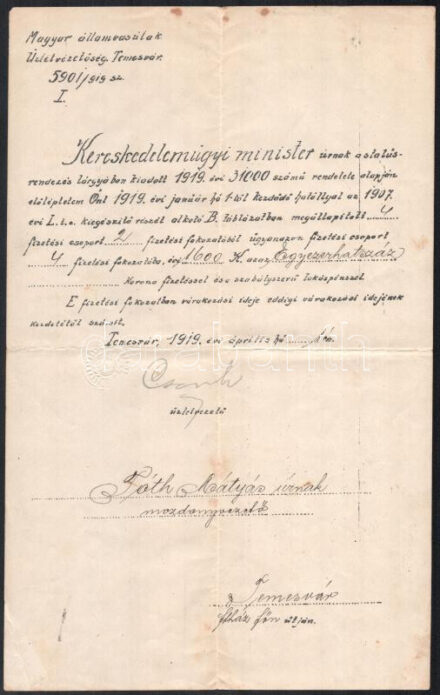 Magyar államvasutak
Üzletvezetőség. Temesvár.
5901/919 sz.
I.
Kereskedelemügyi minister úrnak a státus-
rendezés tárgyában kiadott 1919. évi 31000 számú rendelete alapján
előléptetem Önt 1919. évi január hó 1-től kezdődő hatállyal az 1907.
évi L.t.c. kiegészítő részét alkotó B. táblázatban megállapított 4
fizetési csoport 2 fizetési fokozatából ugyanazon fizetési csoport
4 fizetési fokozatába, évi 1600 K. azaz Egyezerhatszáz
Korona fizetéssel és a szabályszerű lakáspénzzel.
E fizetési fokozatban várakozási ideje eddigi várakozási idejének
kezdetétől számít.
Temesvár, 1919. évi április hó
üzletvezető
Tóth Mátyás úrnak
mozdonyvezető
Temesvár
fűtőház főn útján.
darabanth